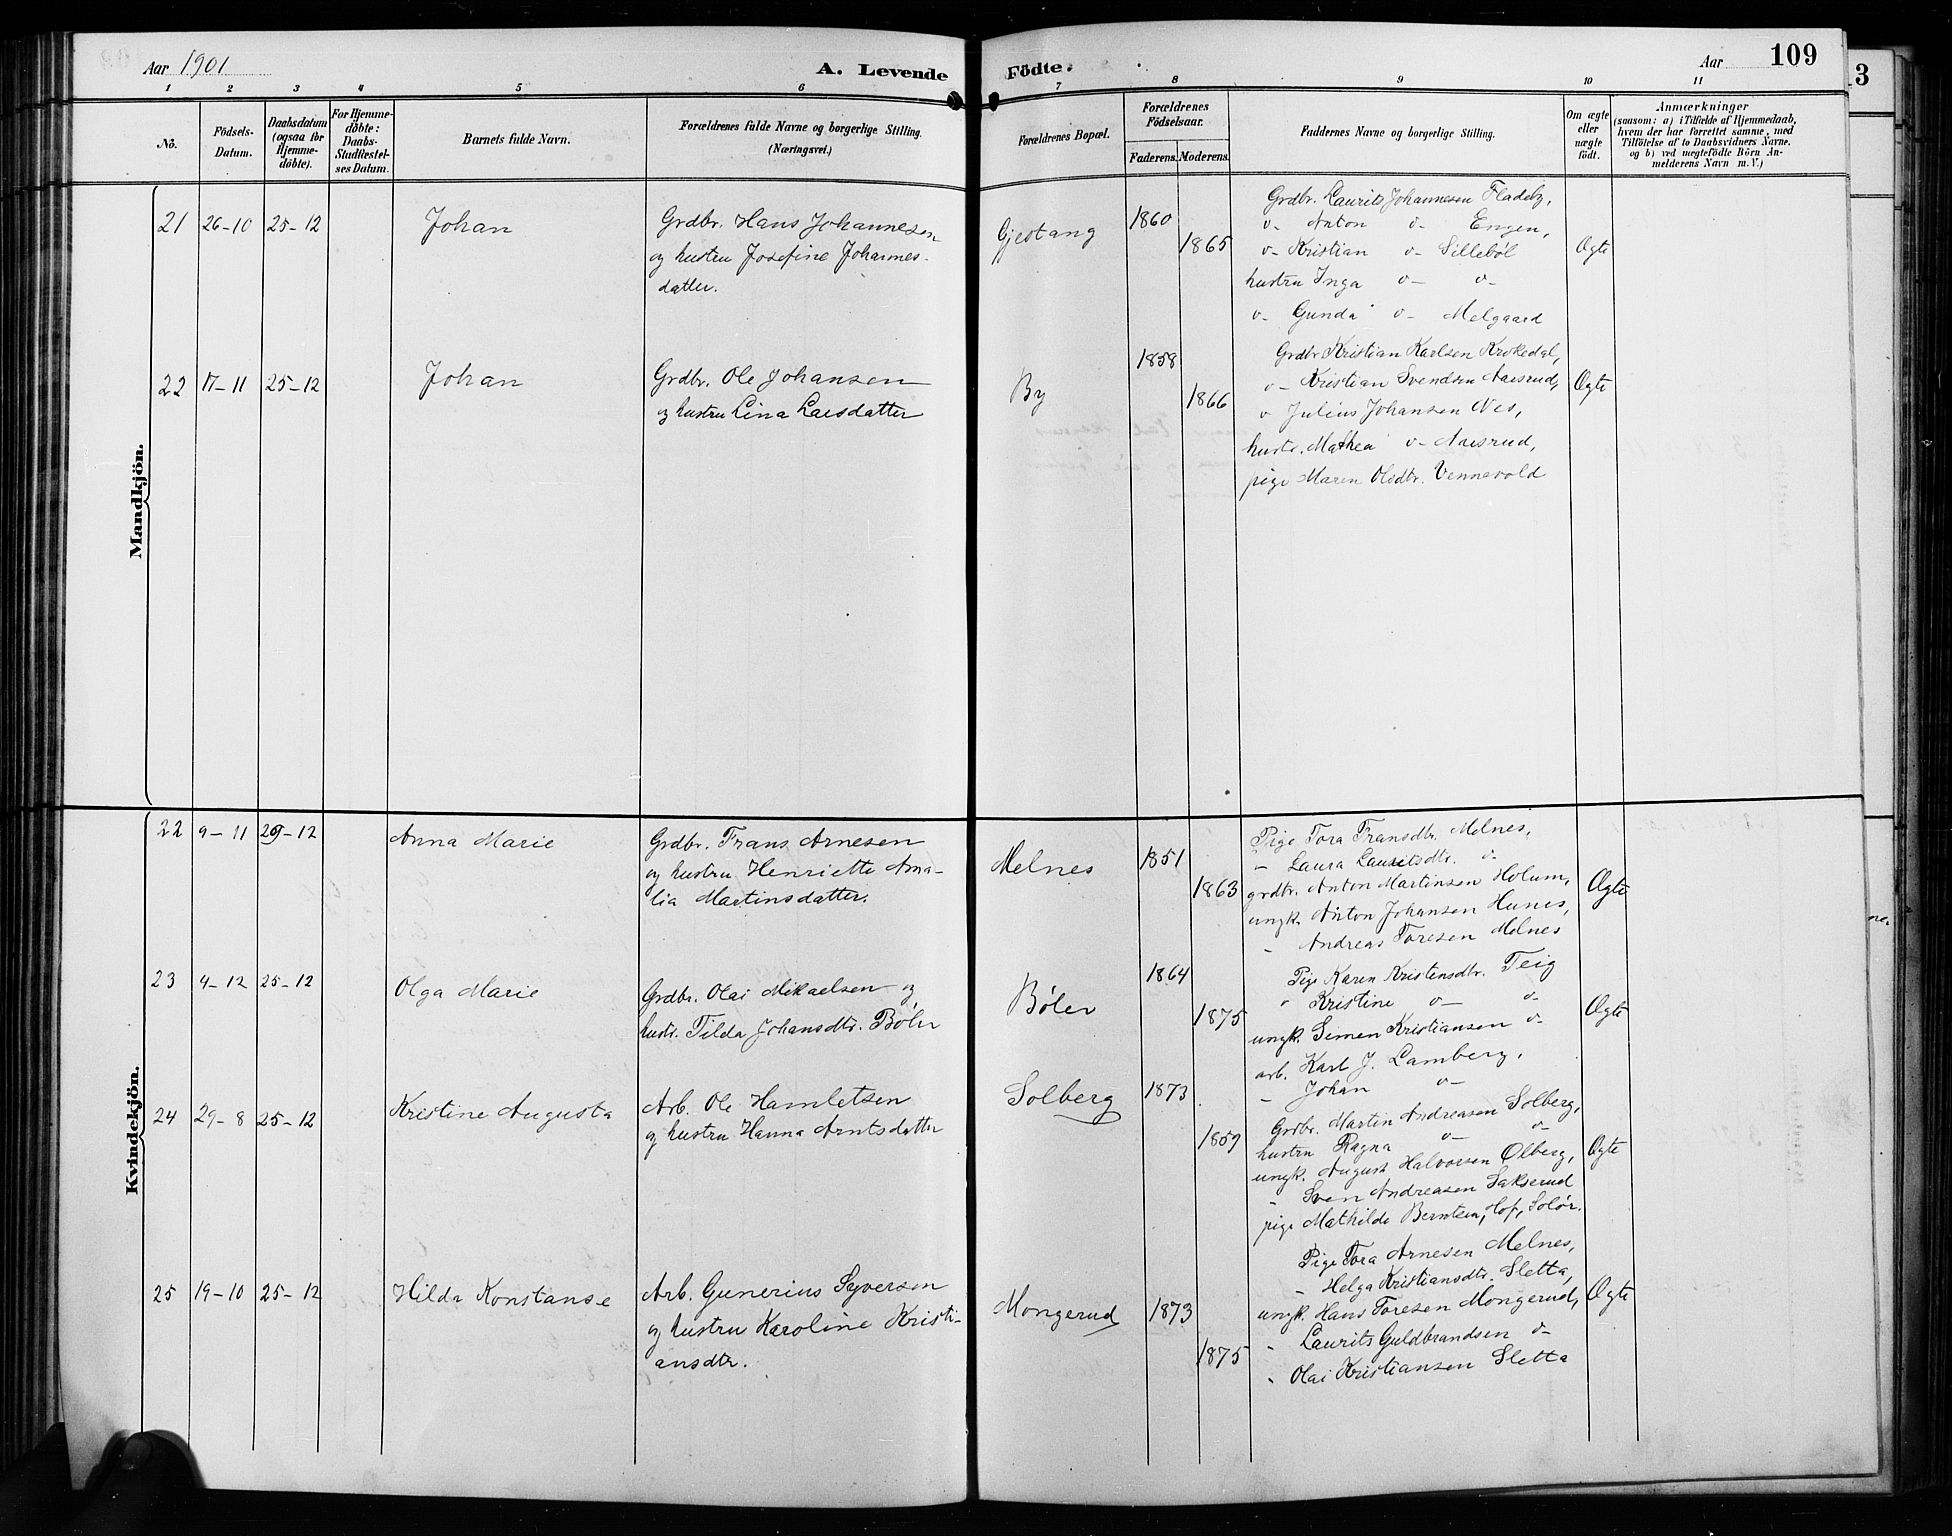 Aar 1901
A. Levende
Födte.
Aar
109
3
1 2 3 4 5 6 7 8 9 10 11
No.
Födsels-
Datum.
Daabsdatum
(ogsaa for
Hjemme-
döbte).
For Hjemme-
döbte:
Daabs-
Stadfæstel-
ses Datum.
Barnets fulde Navn.
Forældrenes fulde Navne og borgerlige Stilling.
(Næringsvei.)
Forældrenes Bopæl.
Forældrenes
Födselsaar.
Faderens. Moderens.
Faddernes Navne og borgerlige Stilling.
Om ægte
eller
uægte
født.
Anmærkninger
(saasom: a) i Tilfælde af Hjemmedaab,
hvem der har forrettet samme, med
Tilföielse af to Daabsvidners Navne,
og b) ved uægtefödte Börn An-
melderens Navn m. V.)
Mandkjön.
21 26-10 25-12
Johan
Grdbr. Hans Johannesen
og hustru Josefine Johannes-
datter.
Gjestang
1860
1865
Grdbr. Laurits Johannesen Fladeby,
v- Anton v- Engen,
v- Kristian v- Sillebøl
hustru Inga v- v-
v- Gunda v- Melgaard
Ægte
22 17-11 25-12
Johan
Grdbr. Ole Johansen
og hustru Lina Larsdatter
By
1858
1866
Grdbr. Kristian Karlsen Krokedal,
v- Kristian Svendsen Aarsrud,
v Julius Johansen Nes,
hustr. Mathea v- Aarsrud,
pige Maren Olsdtr. Vennevold
Ægte
Kvindekjön.
22 9-11 29-12
Anna Marie
Grdbr. Frans Arnesen
og hustru Henriette Ama-
lia Martinsdatter.
Melnes
1851
1863
Pige Tora Fransdtr. Melnes,
- Laura Lauritsdtr. v-
grdbr. Anton Martinsen Holum,
ungk. Anton Johansen Hunes,
- Andreas Toresen Melnes
Ægte
23 4-12 25-12
Olga Marie
Grdbr. Olai Mikaelsen og
hustr. Tilda Johansdtr. Bøler
Bøler
1864
1875
Pige Karen Kristensdtr. Teig
v Kristine v- v-
ungk. Simen Kristiansen v-
arb. Karl J. Lamberg,
- Johan v-
Ægte
24 29-8 25-12
Kristine Augusta
Arb. Ole Hamletsen
og hustru Hanna Arntsdatter
Solberg
1873
1859
Grdbr. Martin Andreasen Solberg,
hustru Ragna v- v-
ungk. August Halvorsen Ølberg,
- Sven Andreasen Sakserud
pige Mathilde Berntsen, Hof, Solør.
Ægte
25 19-10 25-12
Hilda Konstanse
Arb. Gunerius Syversen
og hustru Karoline Kristi-
ansdtr.
Mongerud
1873
1875
Pige Tora Arnesen Melnes,
- Helga Kristiansdtr. Sletta,
ungk. Hans Toresen Mongerud,
- Laurits Guldbrandsen v-
- Olai Kristiansen Sletta
Ægte